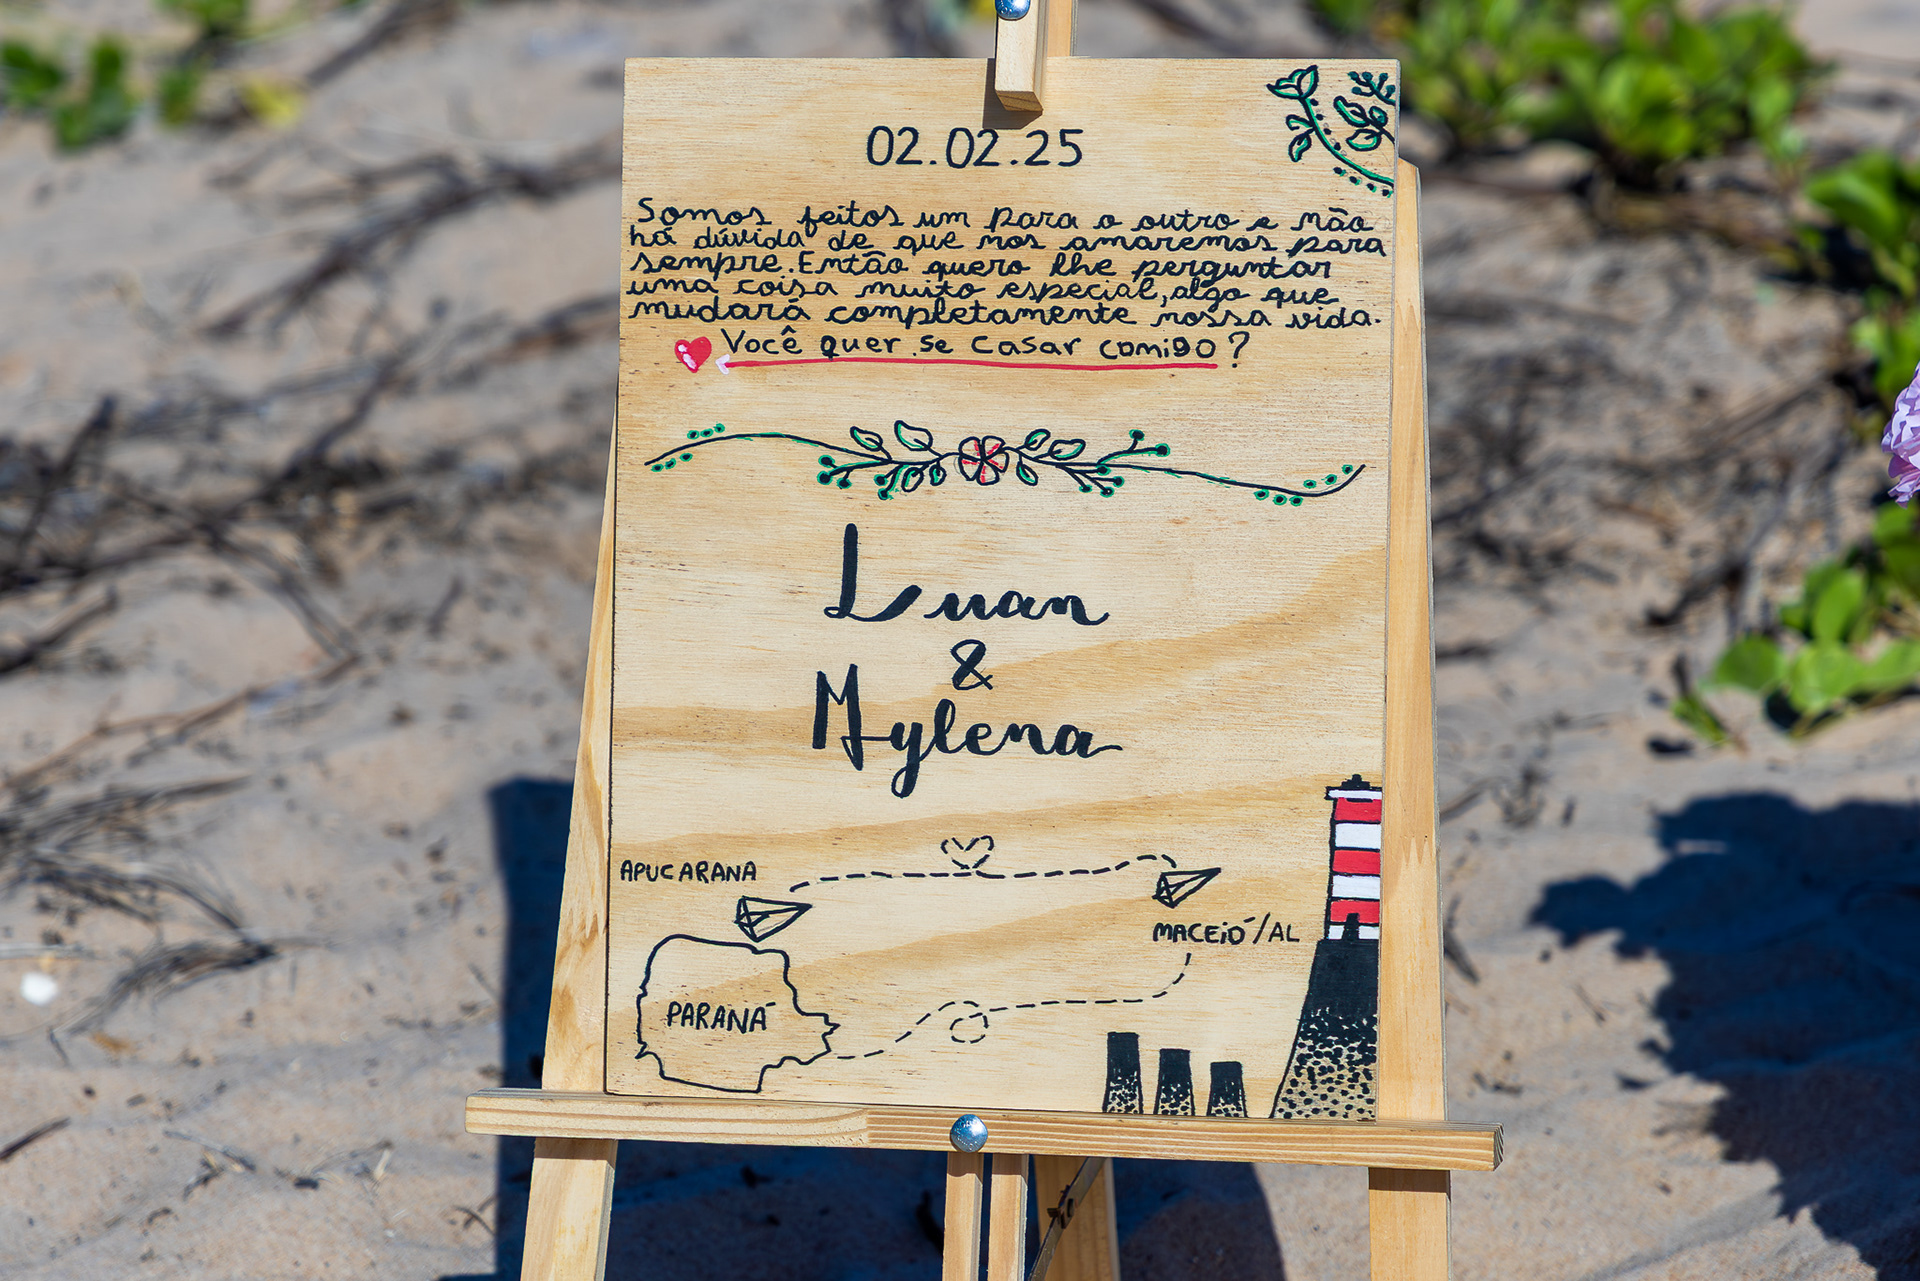 02.02.25
Somos feitos um para o outro e não
há dúvida de que nos amaremos para
sempre. Então quero lhe perguntar
uma coisa muito especial, algo que
mudará completamente nossa vida.
Você quer se casar comigo?
Luan
&
Mylena
APUCARANA
MACEIÓ/AL
PARANÁ